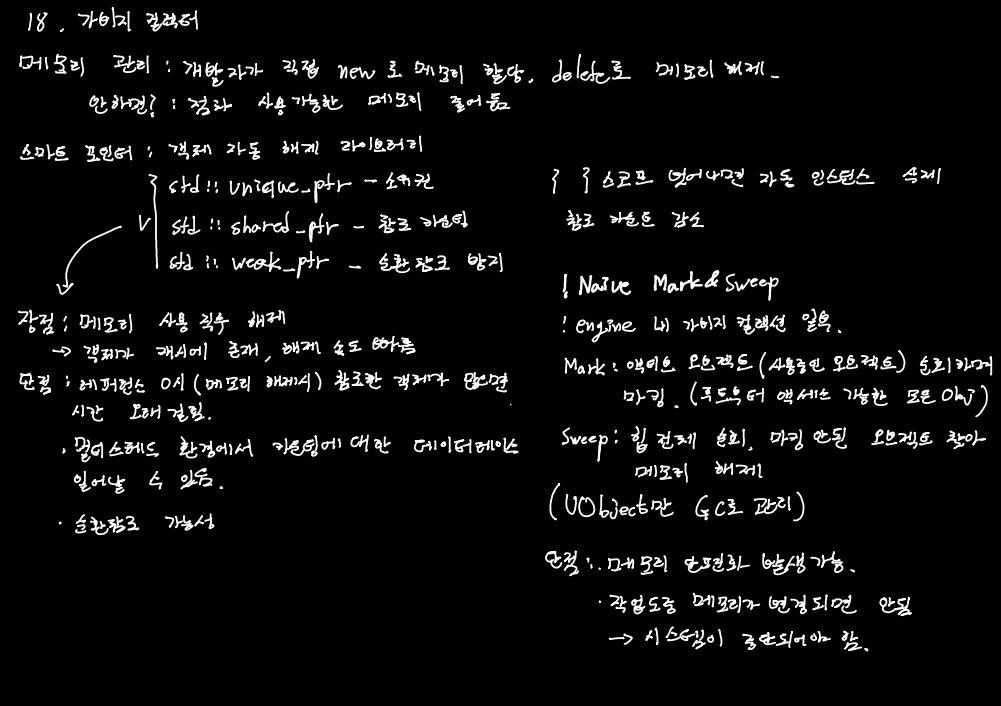 18. 가비지 컬렉터
메모리 관리 : 개발자가 직접 new로 메모리 할당, delete로 메모리 해제.
안하면? : 점차 사용가능한 메모리 줄어듦
스마트 포인터 : 객체 자동 해제 라이브러리
std::unique_ptr - 소유권
std::shared_ptr - 참조 카운팅
std::weak_ptr - 순환참조 방지
장점 : 메모리 사용 직후 해제
→ 객체가 캐시에 존재, 해제 속도 빠름
단점 : 레퍼런스 0시(메모리 해제시) 참조한 객체가 많으면
시간 오래걸림.
· 멀티스레드 환경에서 카운팅에 대한 데이터레이스
일어날 수 있음.
· 순환참조 가능성
{ } 스코프 벗어나면 자동 인스턴스 삭제
참조 카운트 감소
! Naive Mark&Sweep
! engine 내 가비지 컬렉션 일부.
Mark : 액티브 오브젝트(사용중인 오브젝트) 순회하며
마킹. (루트부터 액세스 가능한 모든 Obj)
Sweep : 힙 전체 순회, 마킹 안된 오브젝트 찾아
메모리 해제
(UObject만 GC로 관리)
단점 : · 메모리 단편화 발생가능.
· 작업도중 메모리가 변경되면 안됨
→ 시스템이 중단되어야 함.